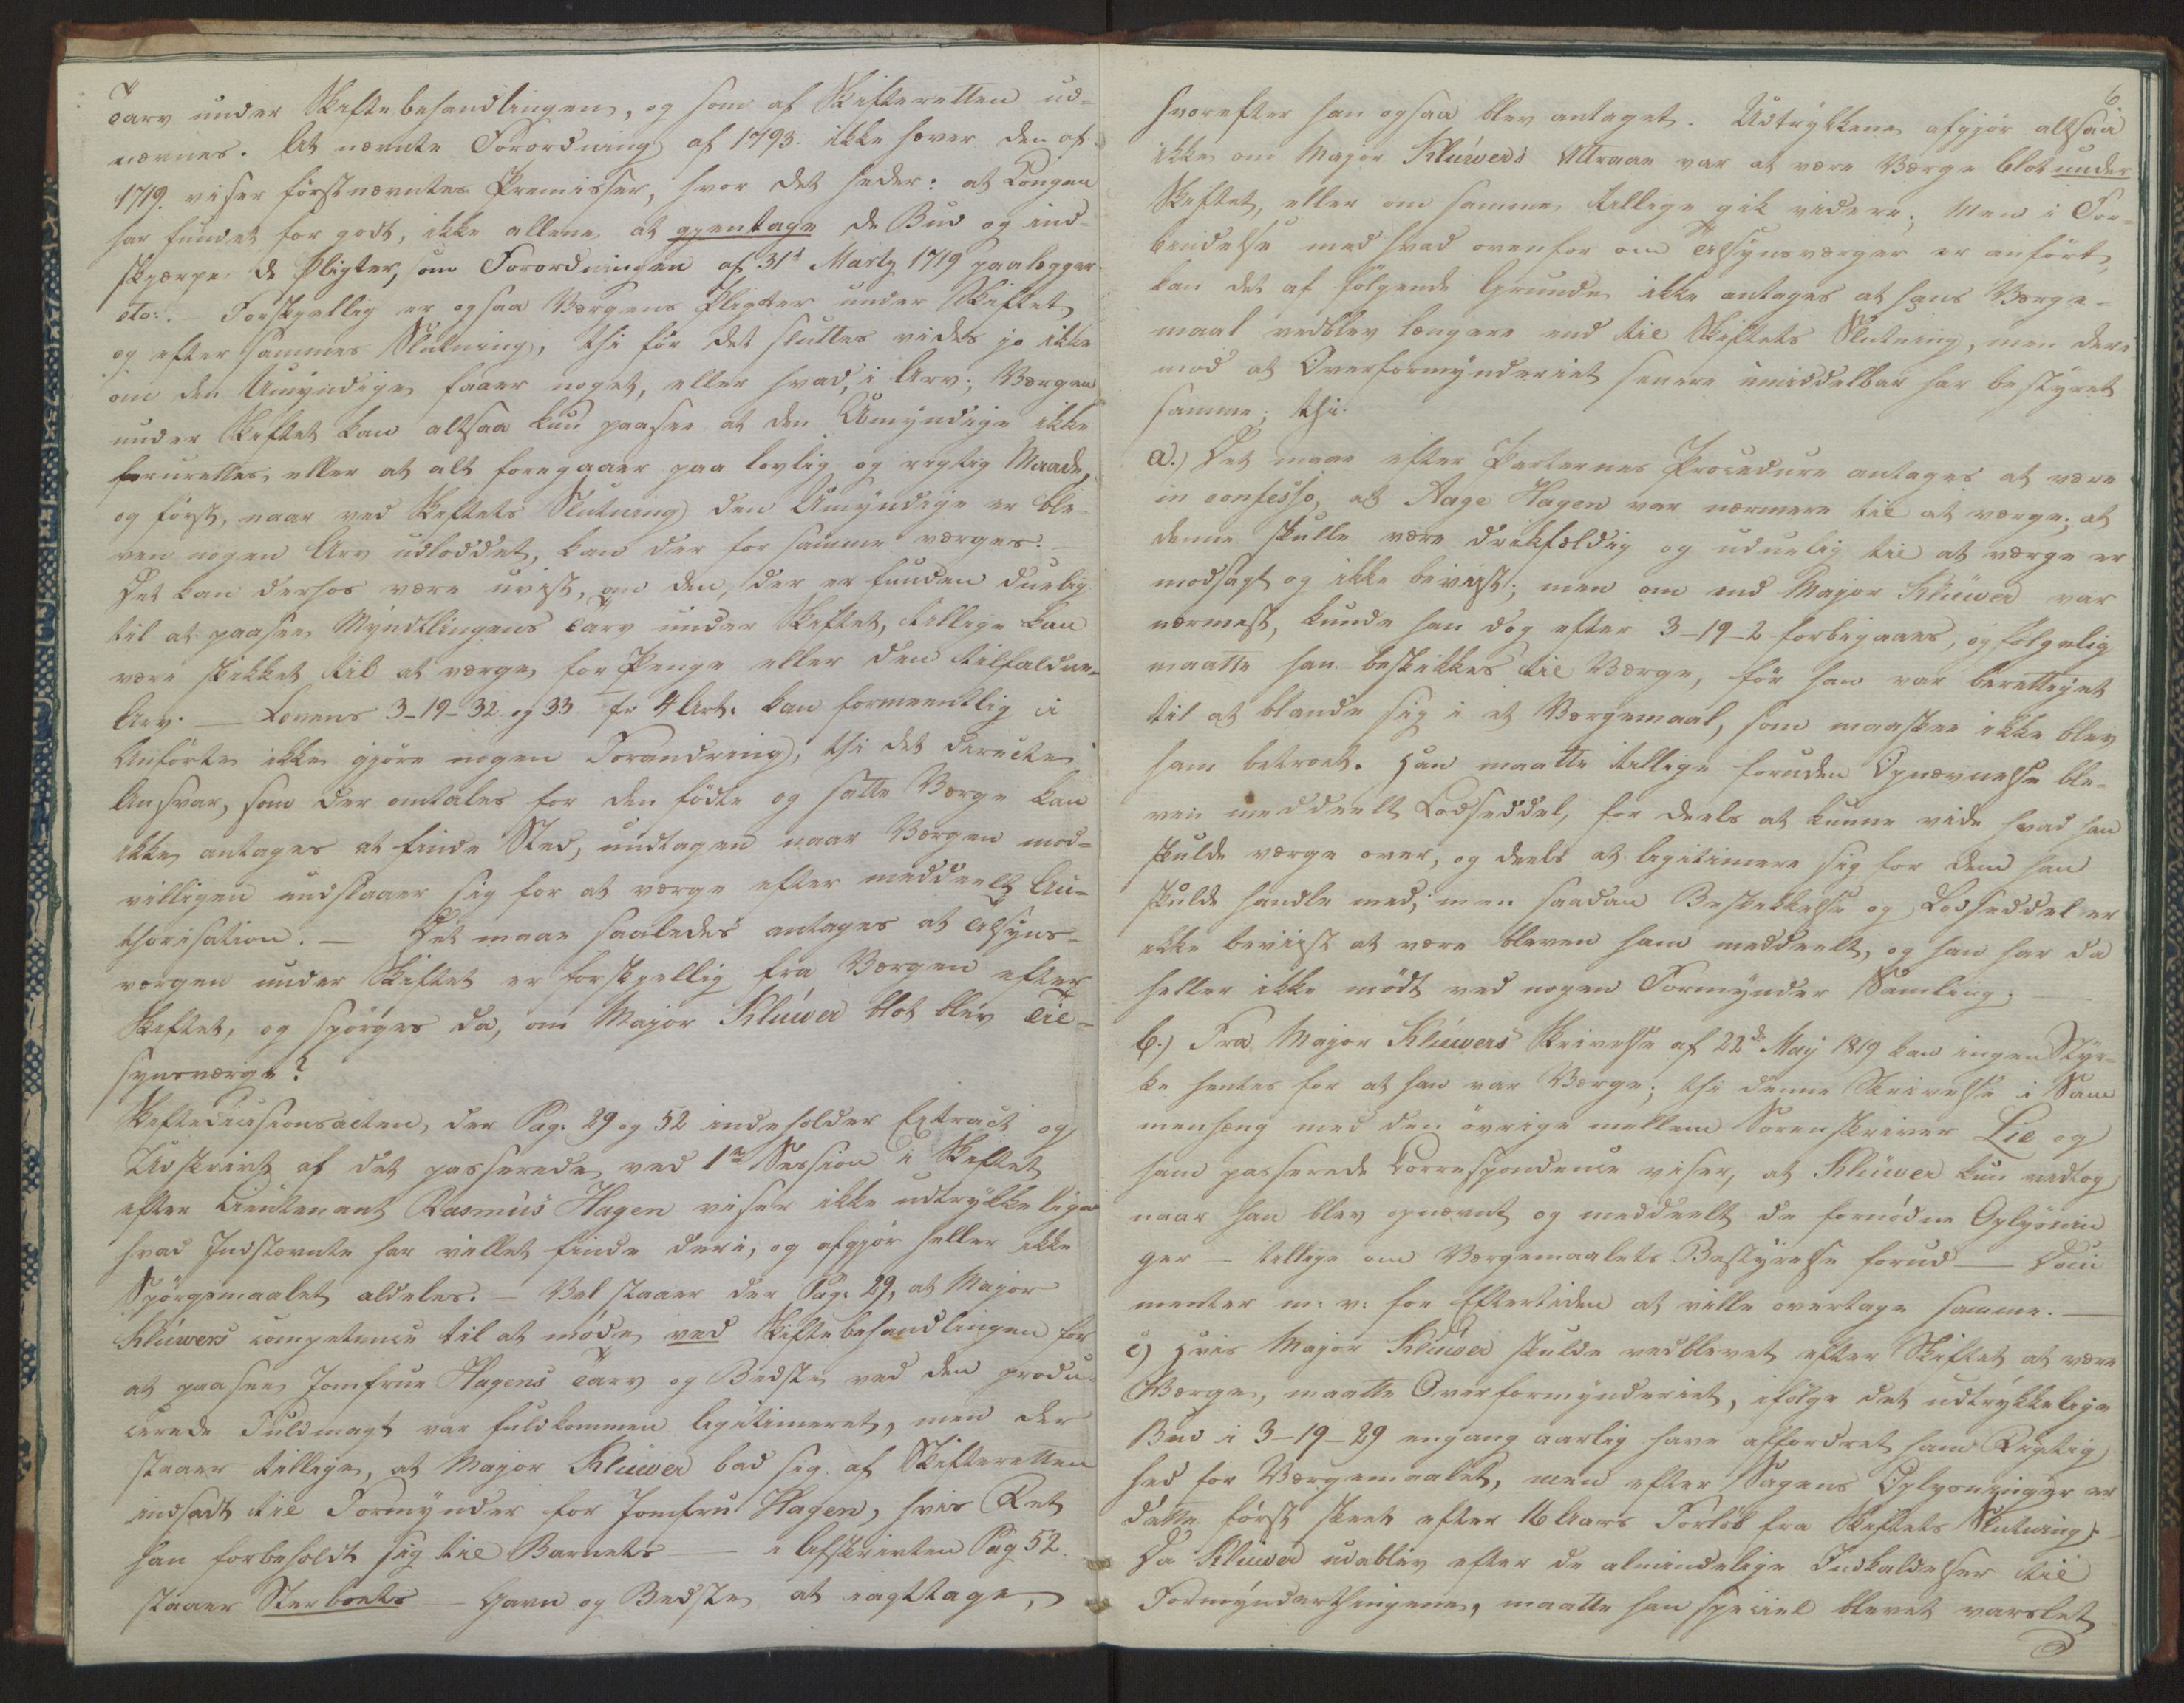 Tarv under Skiftebehandlingen, og som af Skifteretten ud-
nævnes. At nævnte Forordning af 1793. ikke hæver den af
1719. viser førstnævntes Premisser, hvor det heder: at Kongen
har fundet for godt, ikke allene at gjentage de Bud og ind-
skjærpe de Pligter, som Forordningen af 31t Martz 1719 paalægger
etc:. – Forskjellig er ogsaa Værgens Pligter under Skiftet
og efter sammes Slutning, thi før det sluttes vides jo ikke
om den Umyndige faaer noget, eller hvad, i Arv; Værgen
under Skiftet kan altsaa kun paasee at den Umyndige ikke
forurettes, eller at alt foregaaer paa lovlig og rigtig Maade,
og først, naar ved Skiftets Slutning den Umyndige er ble-
ven nogen Arv udloddet, kan der for samme værges. –
Det kan derhos være uvist, om den, der er funden duelig
til at paasee Myndtlingens Tarv under Skiftet, tillige kan
være skikket til at værge for Penge eller den tilfaldne
Arv. — Lovens 3-19-32 og 33 fr 4 Art. kan formeentlig i
Anførte ikke gjøre nogen Forandring; thi det directe
Ansvar, som der omtales for den fødte og satte Værge kan
ikke antages at finde Sted, undtagen naar Værgen mod-
villigen undslaaer sig for at værge efter meddeelt Au-
thorisation. — Det maae saaledes antages at Tilsyns-
værgen under Skiftet er forskjellig fra Værgen efter
Skiftet, og spørges da, om Major Klüwer blot blev Til-
synsværge?
Skiftedicisionsacten, der Pag. 29 og 52 indeholder Extract og
Udskrivt af det passerede ved 1te Session i Skiftet
efter Lieutenant Rasmus Hagen viser ikke udtrykkeligen
hvad Indstævnte har villet finde deri, og afgjør heller ikke
Spørgsmaalet aldeles. – Vel staaer der Pag: 29, at Major
Klüwers competence til at møde ved Skiftebehandlingen for
at paasee Jomfrue Hagens Tarv og Bedste ved den produ
cerede Fuldmagt var fuldkommen legitimeret, men der
staaer tillige, at Major Klüwer bad sig af Skifteretten
indsadt til Formynder for Jomfru Hagen, hvis Ret
han forbeholdt sig til Barnets — i Afskrivten Pag 52.
staaer Sterboets — Gavn og Bedste at iagttage,
6
hvorefter han ogsaa blev antaget. Udtrykkene afgjør altsaa
ikke om Major Klüwers Attraae var at være Værge blot under
Skiftet, eller om samme tillige gik videre; Men i For-
bindelse med hvad ovenfor om Tilsynsværger er anført,
kan det af følgende Grunde ikke antages at hans Værge-
maal vedblev længere end til Skiftets Slutning, men deri
mod at Overformynderiet senere umiddelbar har bestyret
samme; thi.
a.) Det maae efter Parternes Procedure antages at være
in confesso, at Aage Hagen var nærmere til at værge; at
denne skulle være drikfældig og uduelig til at værge er
modsagt og ikke beviist; men om end Major Klüwer var
nærmest, kunde han dog efter 3-19-2 forbigaaes, og følgelig
maatte han beskikkes til Værge, før han var berettiget
til at blande sig i et Værgemaal, som maaskee ikke blev
ham betroet. Han maatte tillige foruden Opnævnelse ble-
ven meddeelt Lodseddel, for deels at kunne vide hvad han
skulde værge over, og deels at legitimere sig for dem han
skulde handle med; men saadan Beskikkelse og Lodseddel er
ikke beviist at være bleven ham meddeelt, og han har da
heller ikke mødt ved nogen Formynder Samling; —
b.) Fra Major Klüwers Skrivelse af 22de Maj 1819 kan ingen Styr-
ke hentes for at han var Værge; thi denne Skrivelse i Sam
menhæng med den øvrige mellem Sorenskriver Lie og
ham passerede Correspondence viser, at Klüwer kun vedtog
naar han blev opnævnt og meddeelt de fornødne Oplysnin
ger — tillige om Værgemaalets Bestyrelse forud — Docu
menter m: v: for Eftertiden at ville overtage samme. —
c) Hvis Major Klüwer skulde vedblevet efter Skiftet at være
Værge, maatte Overformynderiet, ifølge det udtrykkelige
Bud i 3-19-29 engang aarlig have affordret ham Rigtig
hed for Værgemaalet, men efter Sagens Oplysninger er
dette først skeet efter 16 Aars Forløb fra Skiftets Slutning. –
Da Klüwer udablev efter de almindelige Indkaldelser til
Formynderthingene, maatte han speciel blevet varslet